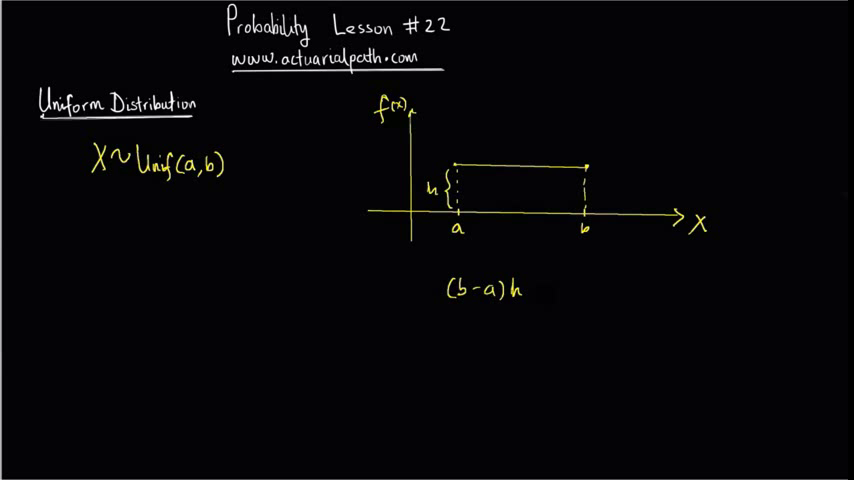 Probability Lesson #22
www.actuarialpath.com
Uniform Distribution
X~Unif(a,b)
f(x)
h
a
b
X
(b-a)h